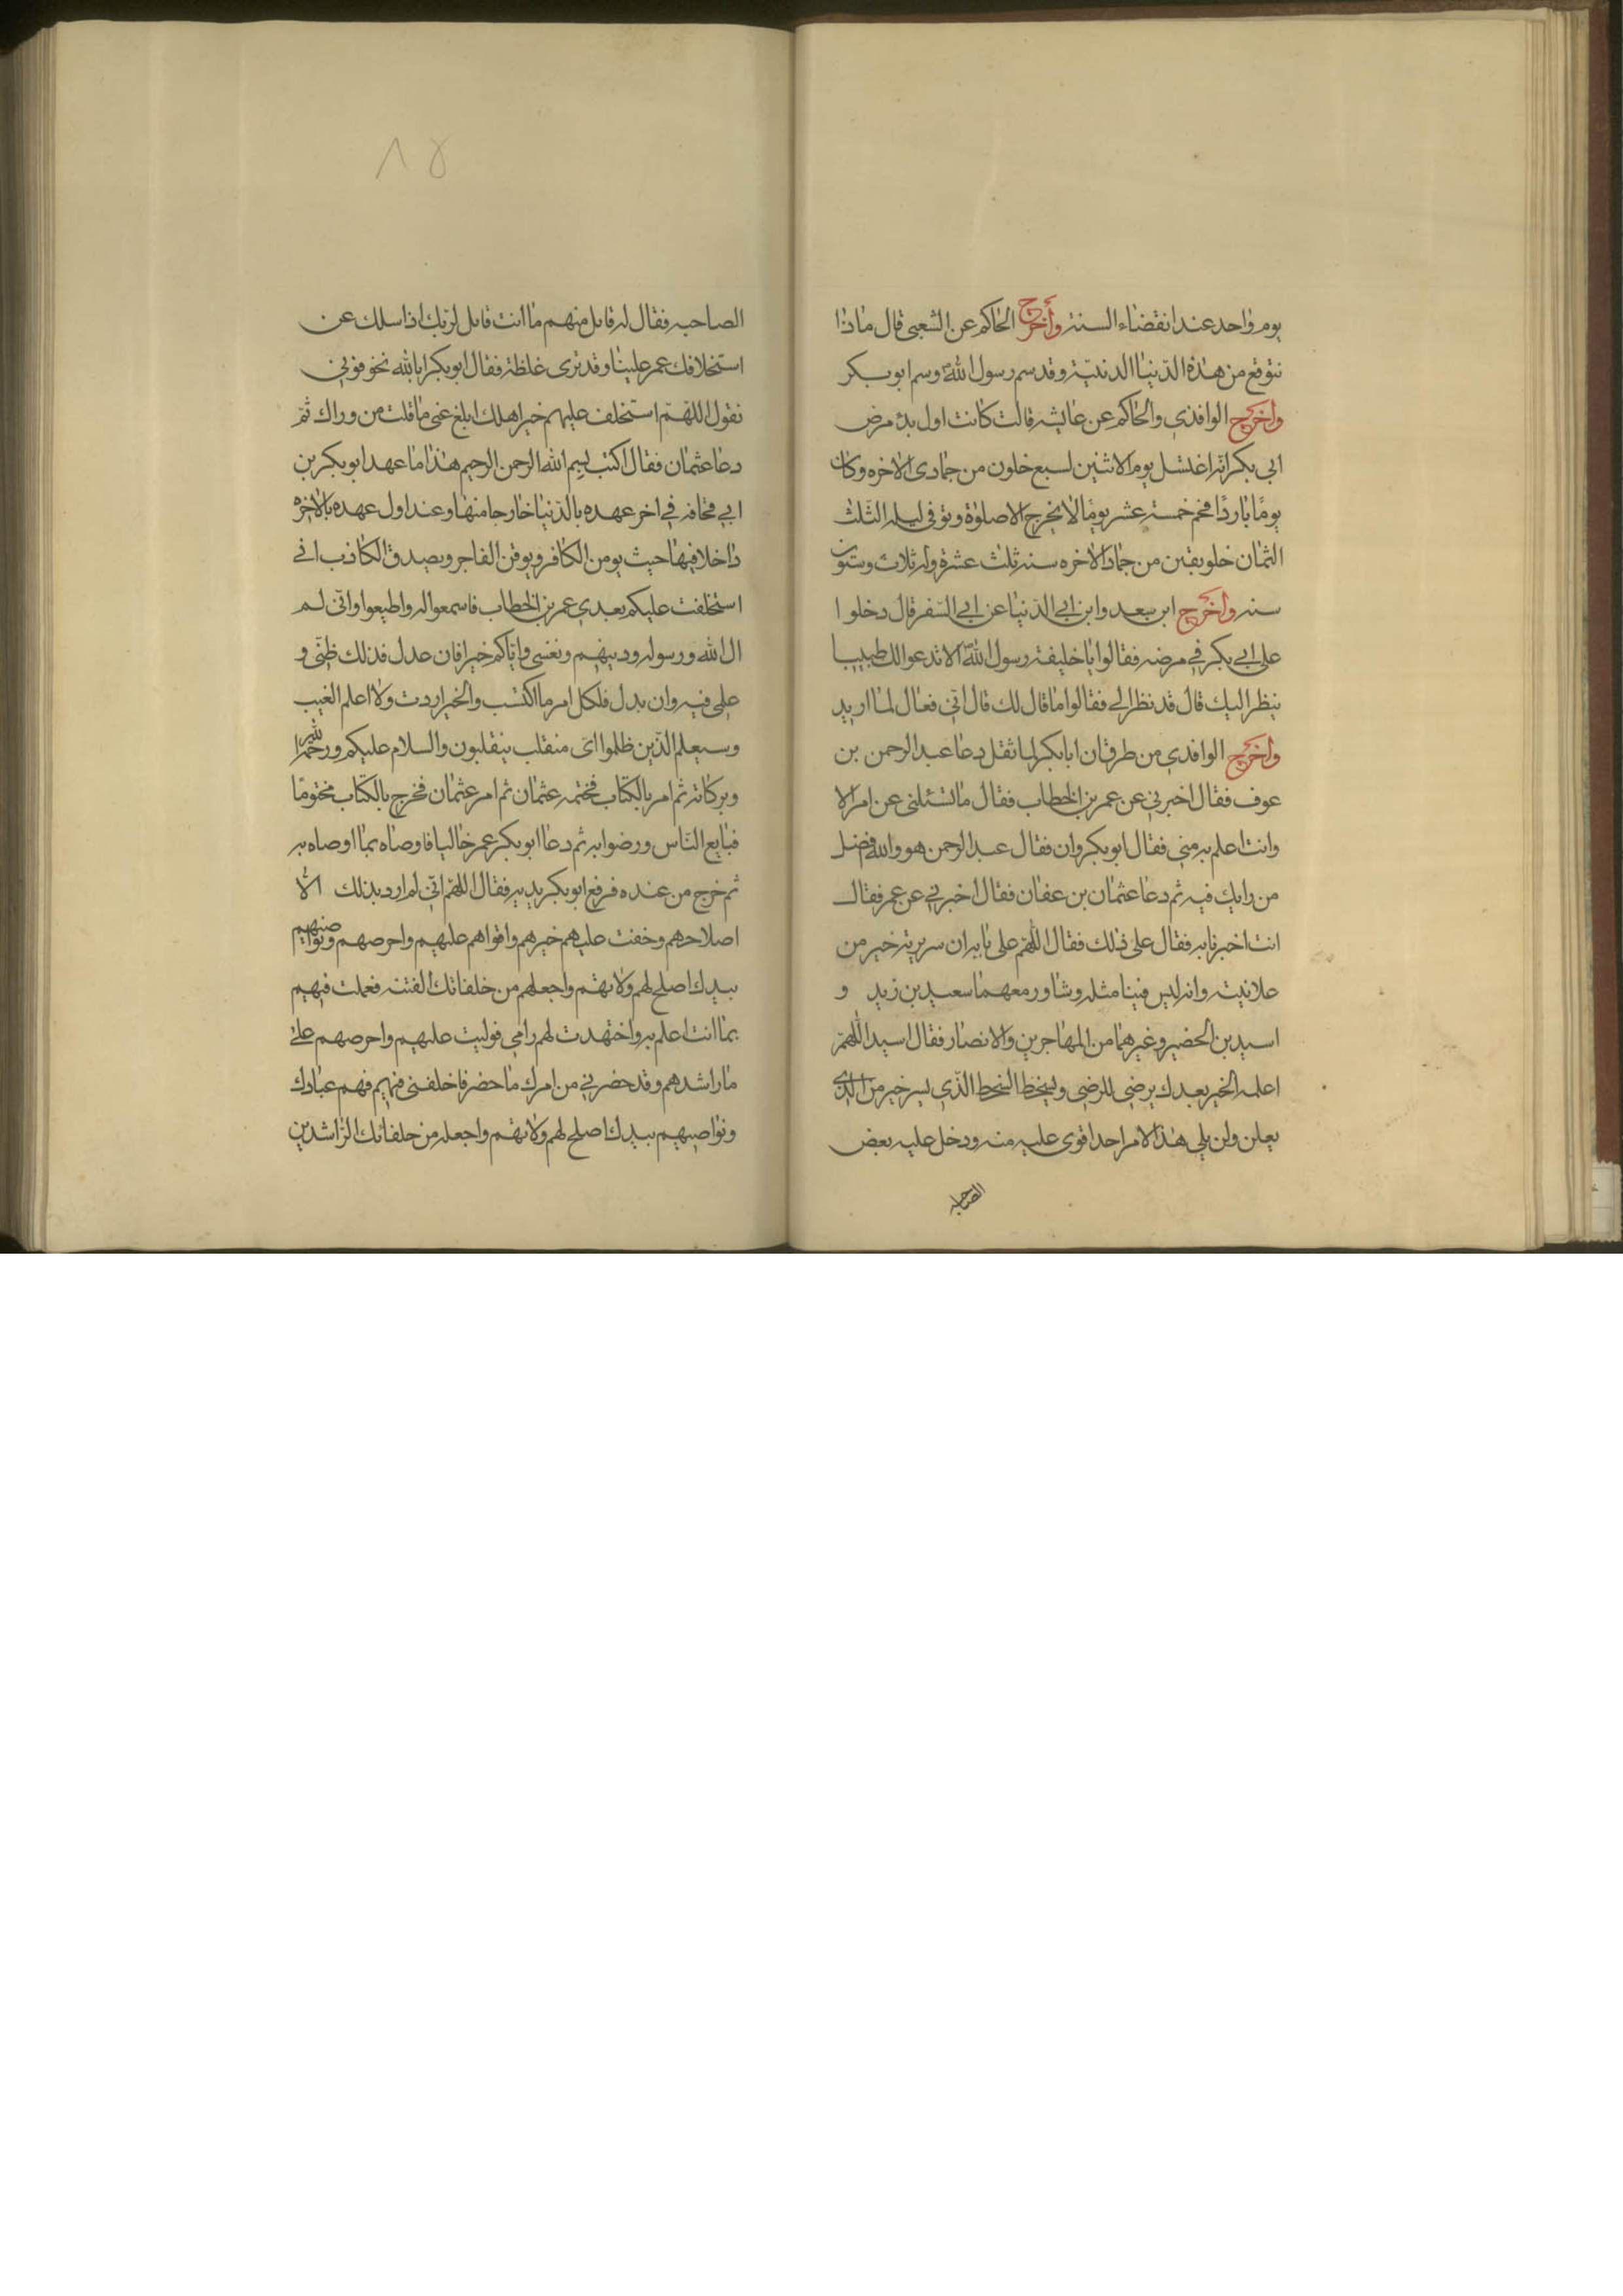 يوم واحد عند انقضاء السنة وأخرج الحاكم عن الشعبى قال ماذا
نتوقع من هذه الدنيا الدنية وقد سم رسول الله وسم ابو بكر
وأخرج الواقدي والحاكم عن عايشه قالت كانت اول بدؤ مرض
ابي بكر انه اغتسل يوم الاثنين لسبع خلون من جمادى الاخره وكان
يومًا باردًا فحم خمسة عشر يومًا لا يخرج الا صلوة وتوفى ليله الثلث
الثمان خلو بقين من جماد الاخره سنه ثلث عشرة وله ثلاث وستون
سنه وأخرج ابن سعد وابن ابي الدنيا عن ابي السفر قال دخلوا
على ابي بكر في مرضه فقالوا يا خليفة رسول الله الا ندعو الك طبيبا
ينظر اليك قال قد نظر الي فقالوا ما قال لك قال اني فعال لما اريد
وأخرج الواقدي من طرق ان ابا بكر لما ثقل دعا عبد الرحمن بن
عوف فقال اخبرني عن عمر بن الخطاب فقال ما تسئلنى عن امر الا
وانت اعلم به منى فقال ابو بكر وان فقال عبد الرحمن هو والله افضل
من رايك فيه ثم دعا عثمان بن عفان فقال اخبرني عن عمر فقال
انت اخبرنا به فقال على ذلك فقال اللهم على نا به ان سريرته خير من
علانيته وانه ليس فينا مثله وشاور معهما سعيد بن زيد و
اسيد بن الحضير وغيرهما من المهاجرين والانصار فقال اسيد اللهم
اعلمه الخير بعدك يرضى للرضى ويسخط السخط الذي يسر خير من الذى
يعلن ولن يلى هذا الامر احد اقوى عليه منه ودخل عليه بعض
الصحابه
٨٥
الصاحبه فقال له قايل منهم ما انت قايل لربك اذا سلك عن
استخلافك عمر علينا وقد ترى غلظة فقال ابو بكر ابالله نخوفوني
نقول اللهم استخلف عليهم خير اهلك ابلغ عنى ما قلت من وراك ثم
دعا عثمان فقال اكتب بسم الله الرحمن الرحيم هذا ما عهد ابو بكر بن
ابي قحافه في اخر عهده بالدنيا خارجا منها وعند اول عهده بالاخره
داخلا فيها حيث يومن الكافر ويوقن الفاجر ويصدق الكاذب انى
استخلفت عليكم بعدي عمر بن الخطاب فاسمعوا له واطيعوا وانى لم
ال الله ورسوله ودينهم ونفسي واياكم خيرا فان عدل فذلك ظنى و
على فيه وان بدل فلكل امر ما اكتسب والخير اردت ولا اعلم الغيب
وسيعلم الذين ظلموا اى منقلب ينقلبون والسلام عليكم ورحمه الله
وبركاته ثم امر بالكتاب فختمه عثمان ثم امر عثمان فخرج بالكتاب مختومًا
فبايع الناس ورضوا به ثم دعا ابو بكر عمر خاليا فاوصاه بما اوصاه به
ثم خرج من عنده فرفع ابو بكر يديه فقال اللهم اني لم ارد بذلك الا
اصلاحهم وخفت عليهم خيرهم واقواهم عليهم واحرصهم ونواصيهم
بيدك اصلح لهم ولاتهم واجعلهم من خلفائك الفتنه فعملت فيهم
بما انت اعلم به واختهدت لهم رامي فوليت عليهم واحرصهم على
ما راشدهم وقد حضرني من امرك ما حضر فاخلفنى فيهم فهم عبادك
ونواصيهم بيدك اصلح لهم ولاتهم واجعله من خلفائك الراشدين